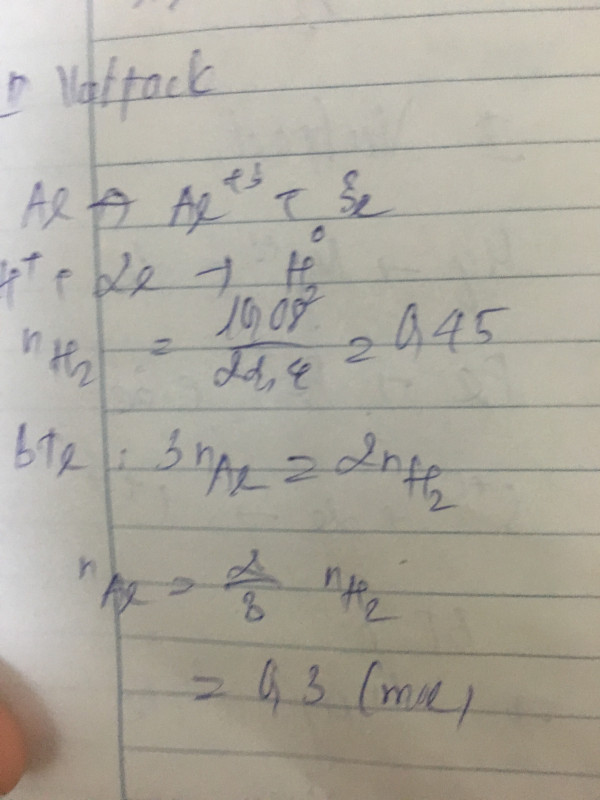 Al → Al⁺³ + 3e
H⁺ + 2e → H₂⁰
nH₂ = 10,08/22,4 = 0,45
bte : 3nAl = 2nH₂
nAl = 2/3 nH₂
= 0,3 (mol)